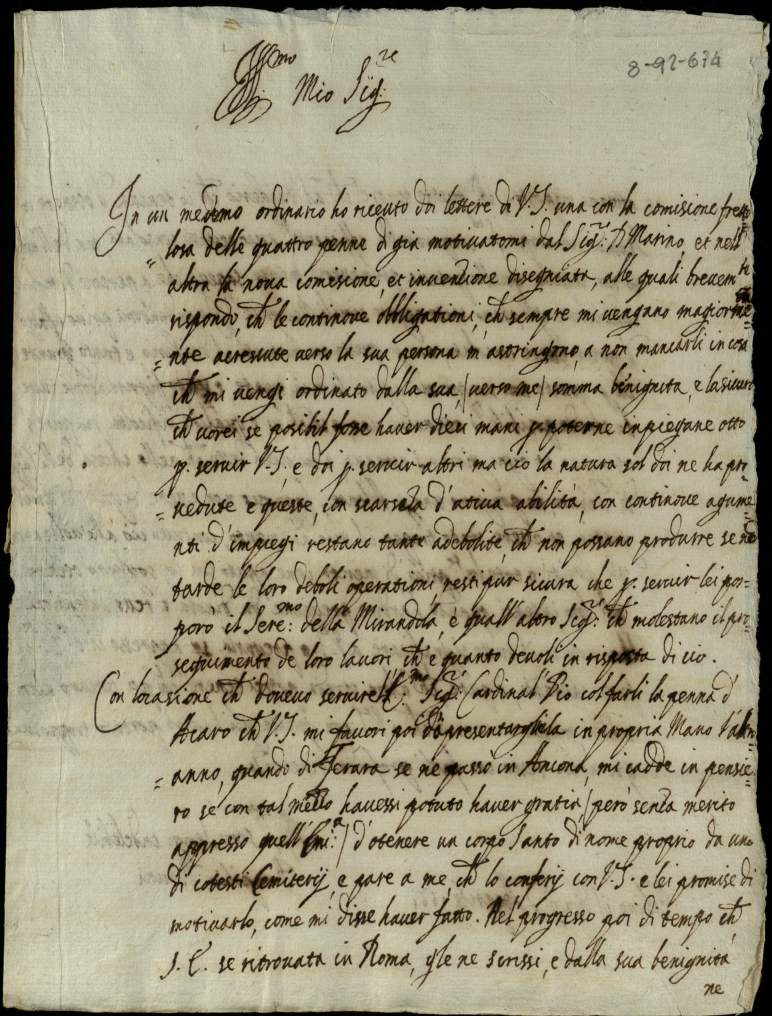 8-92-674
Ill.mo Mio Sig.re
In un medemo ordinario ho riceuto doi lettere di V.S. una con la comisione fret
= losa delle quattro penne di gia motivatomi dal Sig.r D Marino, et nell'
altra la nova comisione, et invendione disegniata, alle quali brevem.te
rispondo, ch le continove obbligationi, ch sempre mi vengano magiorme
= nte acresute verso la sua persona m'astringono, a non mancarli in cosa
ch mi vengi ordinato dalla sua, (verso me) somma benignita, e lasicuro
ch vorei se posibil fosse haver dieci mani p. poterne inpiegane otto
p. servir V.S, e doi p. servir altri ma ciò la natura sol doi ne ha pro
= vedute e queste, con scarseza d'ativa abilità, con continove agume
= nti d'impiegi restano tante adebolite, ch non possano produrre se no
tarde le loro deboli operationi resti pur sicura che p. servir lei pos=
poro il Sere.mo della Mirandola, e quall'altro Sig.re ch molestano il pro=
seguimento de loro lavori ch è quanto devoli in risposta di ciò.
Con locasione ch dovevo servire Sig.r Cardinal Pio col farli la penna d'
Acaro ch V.S. mi favori poi presentarghila in propria Mano
= anno, quando di Ferara se ne passò in Ancona, mi cadde in pensie
ro se con tal mezzo havessi potuto haver gratia (però senza merito
appresso quell' Emi.a) d'otenere un corpo Santo di nome proprio da uno
di cotesti Cemiterij, e pare a me, ch lo conferij con V.S. e lei promise di
motivarlo, come mi disse haver fatto. Nel progresso poi di tempo ch
S. E. se ritrovata in Roma, gle ne scrissi, e dalla sua benignità
ne